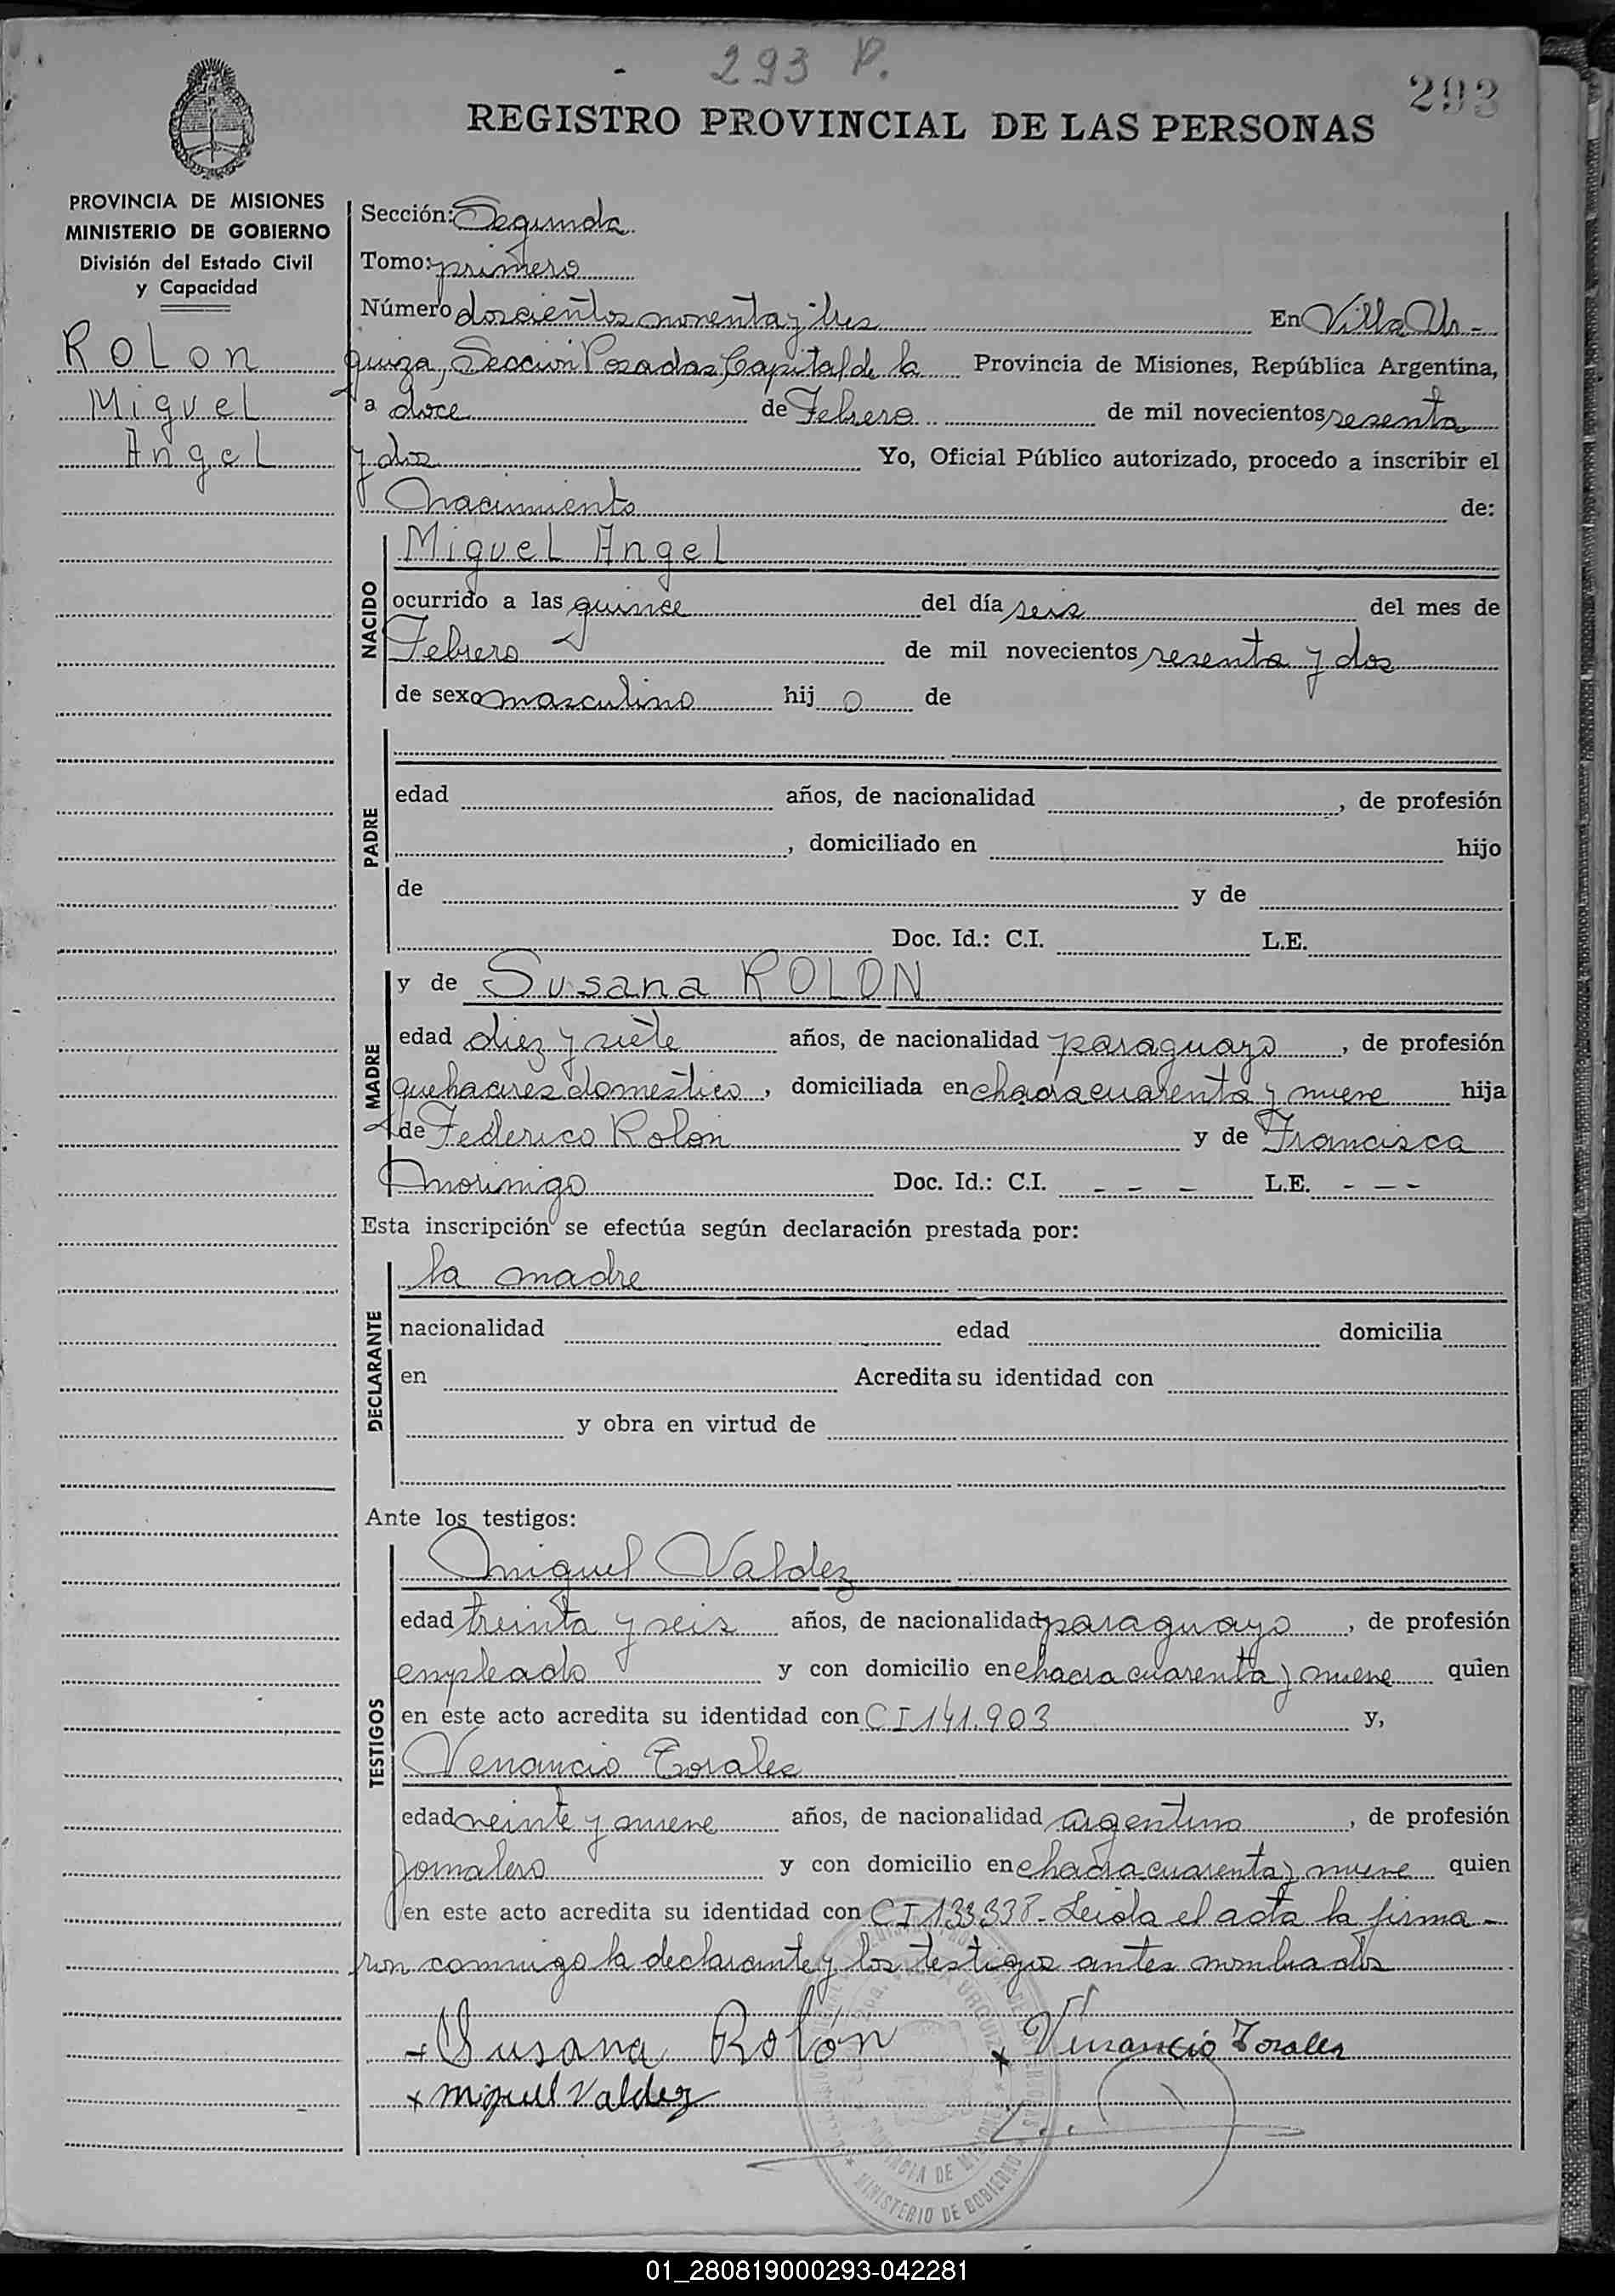 293 P.
293
REGISTRO PROVINCIAL DE LAS PERSONAS
PROVINCIA DE MISIONES
MINISTERIO DE GOBIERNO
División del Estado Civil
y Capacidad
Rolon
Miguel
Angel
Sección: Segunda
Tomo: primero
Número doscientos noventa y tres En Villa Ur-
quiza, Sección Posadas, Capital de la Provincia de Misiones, República Argentina,
a doce de Febrero de mil novecientos sesenta
y dos Yo, Oficial Público autorizado, procedo a inscribir el
Nacimiento de:
NACIDO
Miguel Angel
ocurrido a las quince del día seis del mes de
Febrero de mil novecientos sesenta y dos
de sexo masculino hij o de
PADRE
edad años, de nacionalidad , de profesión
, domiciliado en hijo
de y de
Doc. Id.: C.I. L.E.
MADRE
y de Susana ROLON
edad diez y siete años, de nacionalidad paraguayo , de profesión
quehaceres domestico , domiciliada en chacra cuarenta y nueve hija
de Federico Rolon y de Francisca
Morinigo Doc. Id.: C.I. - - - L.E. - - -
Esta inscripción se efectúa según declaración prestada por:
DECLARANTE
la madre
nacionalidad edad domicilia
en Acredita su identidad con
y obra en virtud de
Ante los testigos:
TESTIGOS
Miguel Valdez
edad treinta y seis años, de nacionalidad paraguayo , de profesión
empleado y con domicilio en chacra cuarenta y nueve quien
en este acto acredita su identidad con CI 141.903 y,
Venancio Torales
edad veinte y nueve años, de nacionalidad argentino , de profesión
jornalero y con domicilio en chacra cuarenta y nueve quien
en este acto acredita su identidad con CI 133.338- Leida el acta la firma-
ron conmigo la declarante y los testigos antes nombrados
+ Susana Rolón x Venancio Torales
x Miguel Valdez
PROVINCIA DE MISIONES
MINISTERIO DE GOBIERNO
01_280819000293-042281